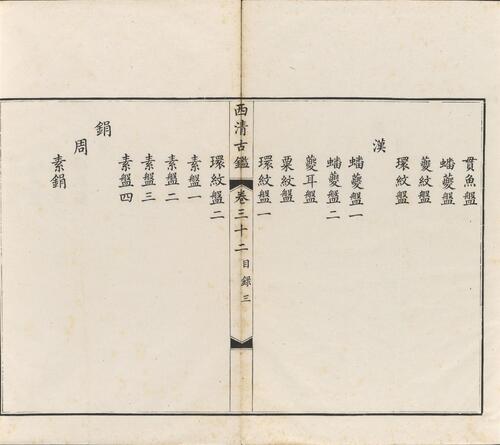 貫魚盤
蟠夔盤
夔紋盤
環紋盤
漢
蟠夔盤一
蟠夔盤二
夔耳盤
粟紋盤
環紋盤一
西清古鑑 卷三十二 目錄 三
環紋盤二
素盤一
素盤二
素盤三
素盤四
鋗
周
素鋗